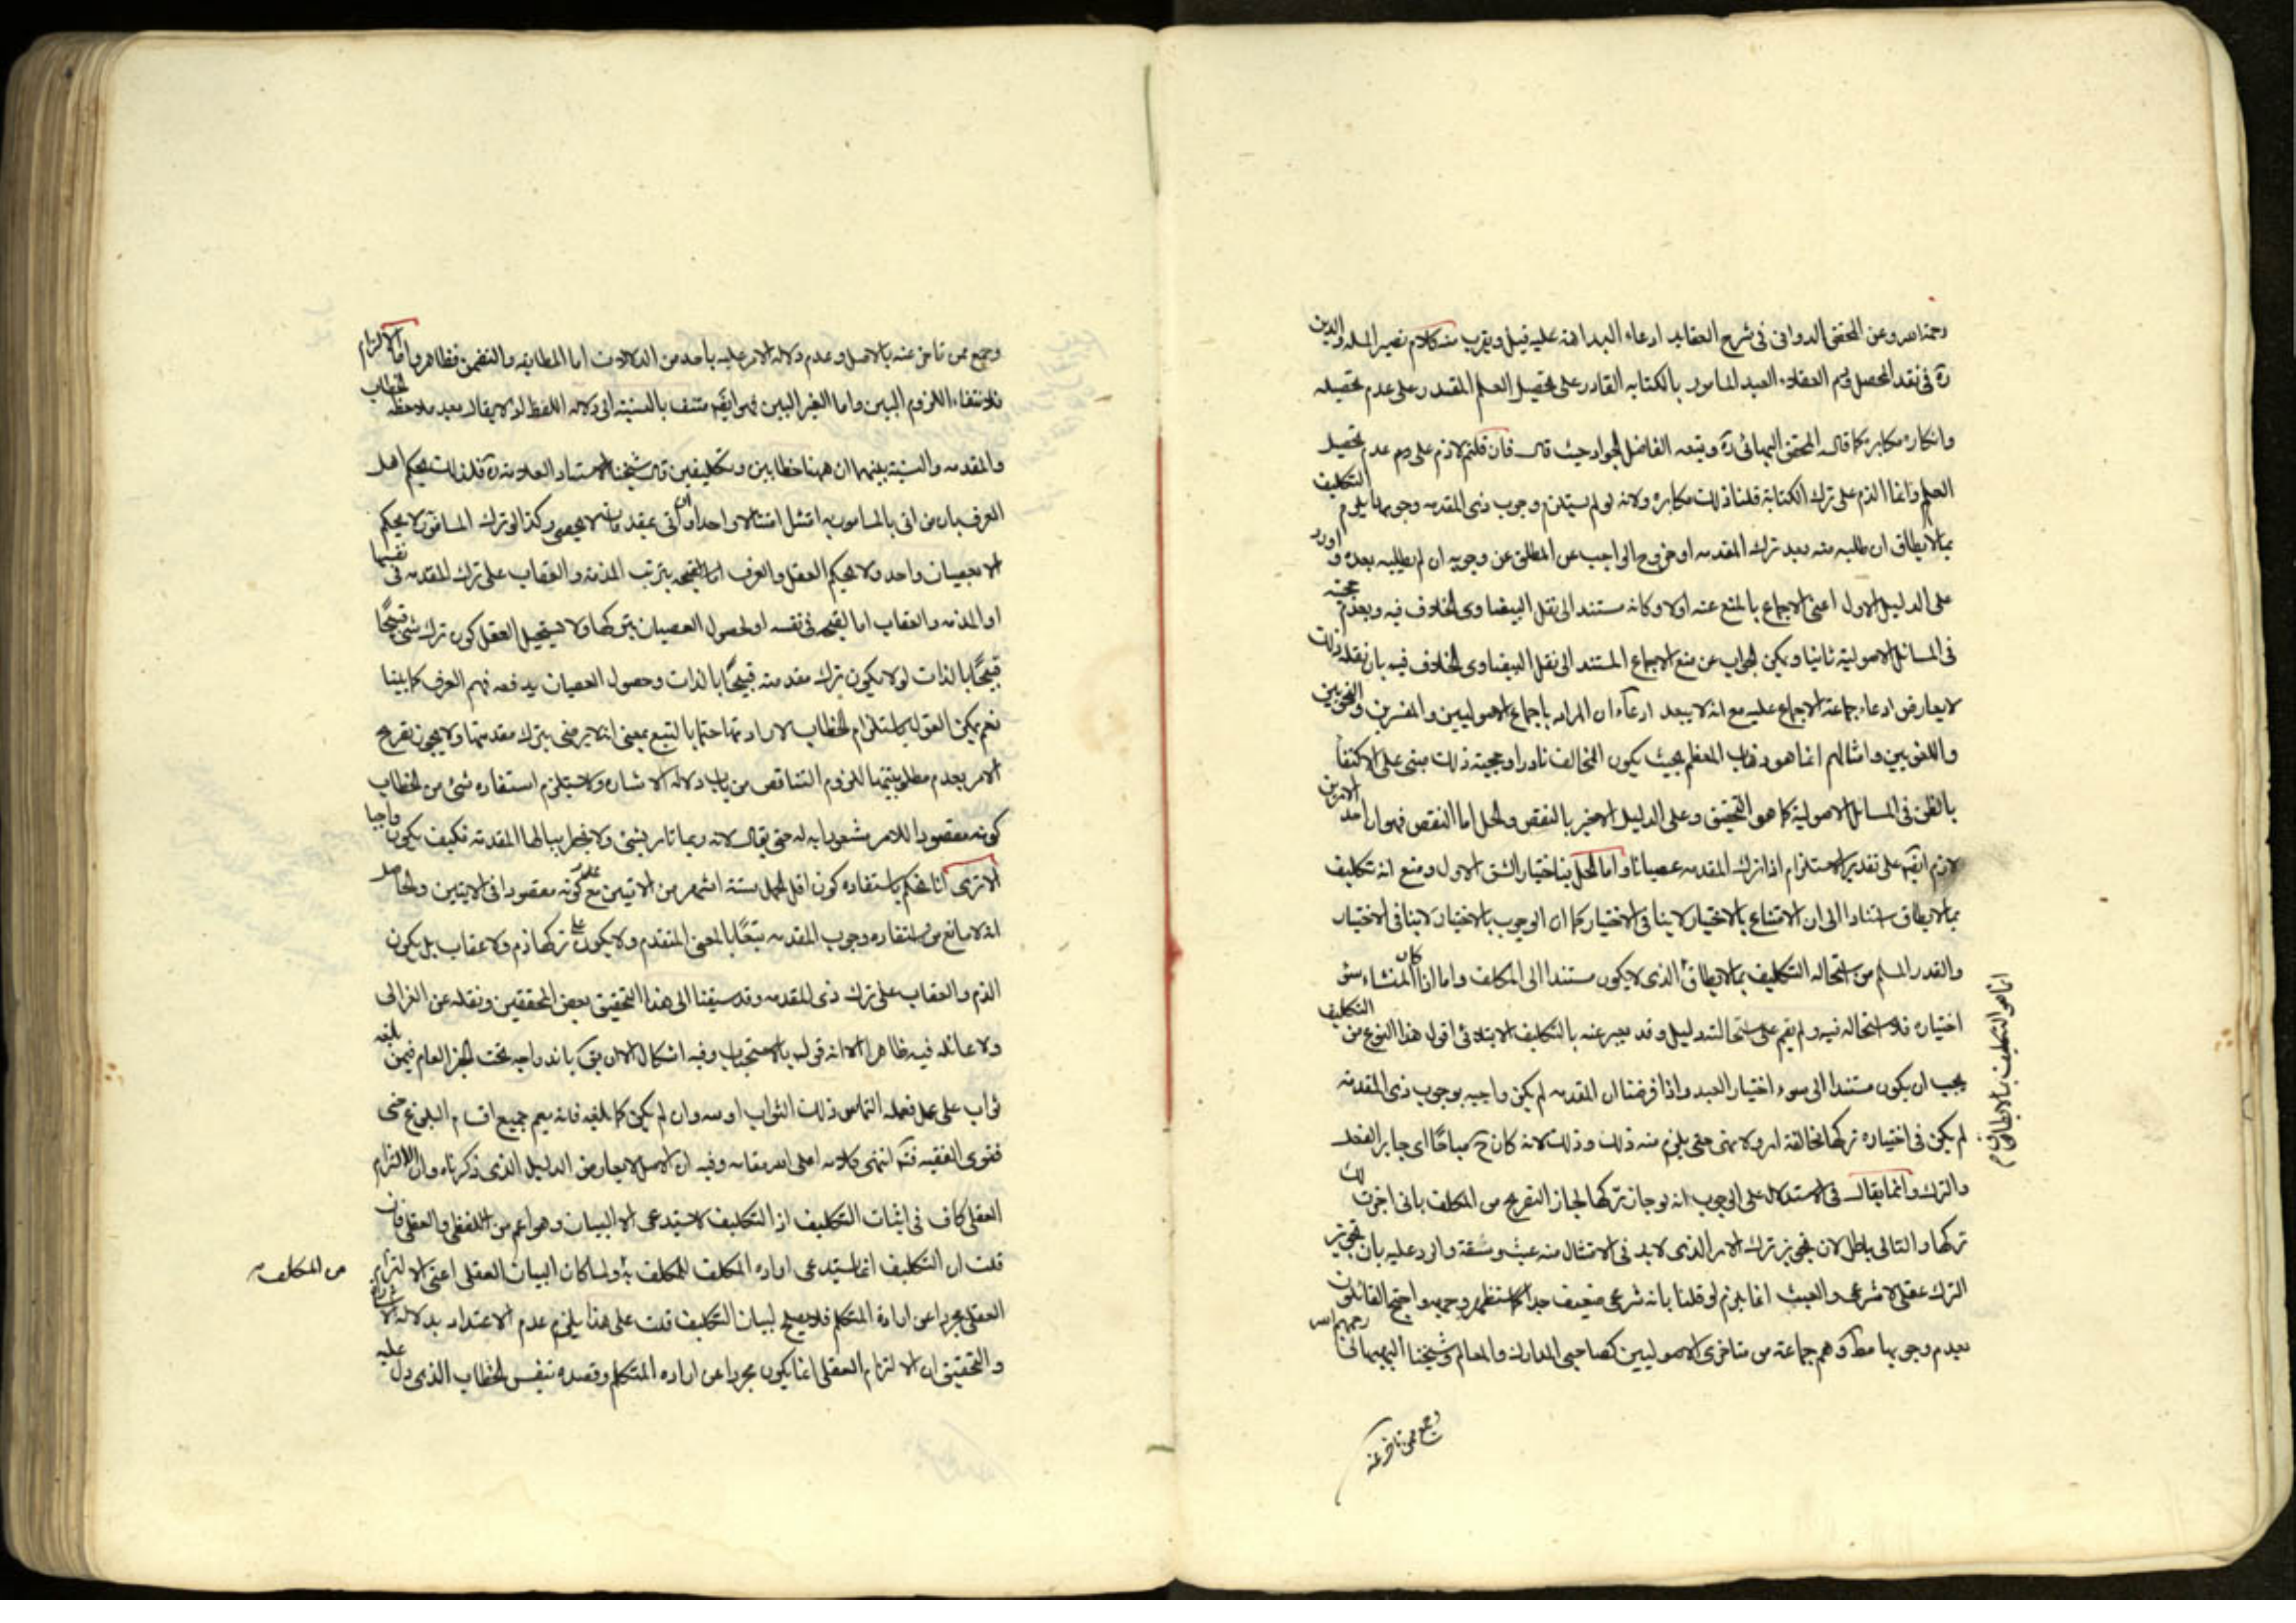 رحمه الله وعن المحقق الدوانى فى شرح العقايد ادعاء البداهة عليه قيل ويقرب منه كلام نصير الملة والدين
ره فى نقد المحصل ذم العقلاء العبد المامور بالكتابه القادر على تحصيل العلم المقتدر على عدم تحصيله
وانكاره مكابرة كما قال المحقق البهبهائى ره وتبعه الفاضل الجواد حيث قال فان قلتم لا ذم على عدم تحصيل
العلم وانما الذم على ترك الكتابة قلنا ذلك مكابره ولانه لو لم يستلزم وجوب ذى المقدمه وجوبها يلزم التكليف
بما لا يطاق ان طلبه منه بعد ترك المقدمه او خروج الواجب عن المطلق عن وجوبه ان لم يطلبه بعده واورد
على الدليل الاول اعنى الاجماع بالمنع عنه اولا وكانه مستند الى نقل البيضاوى الخلاف فيه وبعدم حجيته
فى المسائل الاصولية ثانيا ويمكن الجواب عن منع الاجماع المستند الى نقل البيضاوى الخلاف فيه بان نقله ذلك
لا يعارض ادعاء جماعة الاجماع عليه مع انه لا يبعد ادعاء ان المراد باجماع الاصوليين والمفسرين والنحويين
واللغويين وامثالهم انما هو ذهاب المعظم بحيث يكون المخالف نادرا وحجية ذلك مبنى على الاكتفا
بالظن فى المسائل الاصولية كما هو التحقيق وعلى الدليل الاخير بالنقض والحل اما النقض فهو ان احد الامرين
لازم ايضا على تقدير الاستلزام اذا ترك المقدمه عصيانا واما الحل باختيار الشق الاول ومنع انه تكليف
بما لا يطاق استنادا الى ان الامتناع بالاختيار لا ينافى الاختيار كما ان الوجوب بالاختيار لا ينافى الاختيار
والقدر المسلم من استحاله التكليف بما لا يطاق الذى لا يكون مستندا الى المكلف واما اذا كان المنشاء سوء
اختياره فلا استحاله فيه ولم يقم على استحالته دليل وقد يعبر عنه بالتكليف الابتلائى اقول هذا النوع من التكليف
يجب ان يكون مستندا الى سوء اختيار العبد واذا فرضنا ان المقدمه لم يكن واجبه بوجوب ذى المقدمة
لم يكن فى اختياره تركها مخالفة امر ولا نهى حتى يلزم منه ذلك وذلك لانه كان ح مباحا اى جايز الفعل
والترك وانما يقال فى الاستدلال على الوجوب انه لو جاز تركها لجاز التصريح من المكلف بانى اجزت لك
تركها والتالى باطل لان تجويز ترك الامر الذى لا بد فى الامتثال منه عبث وسفه واورد عليه بان تجويز
الترك عقلى لا شرعى والعبث انما يلزم لو قلنا بانه شرعى ضعيف جدا كما ستظهر وجهه واحتج القائلون
بعدم وجوبها مطلقا وهم جماعة من متاخرى الاصوليين كصاحبى المدارك والمعالم وشيخنا البهبهانى رحمهم الله
وجمع ممن تاخر عنه
انما هو التكليف بما لا يطاق
وجمع ممن تاخر عنه بالاصل وعدم دلاله الامر عليه باحد من الدلالات اما المطابقه والتضمن فظاهر واما الالتزام
فلانتفاء اللزوم البين واما الغير البين فهو ايضا منتف بالنسبة الى دلاله اللفظ اذ لا يقال بعد ملاحظة الخطاب
والمقدمه والنسبة بينهما ان ههنا خطابين وتكليفين قال شيخنا الاستاد العلامه ره فلذلك يحكم اهل
العرف بان من اتى بالمامور به امتثل امتثالا واحدا وان اتى بمقدماته لا يحصى وكذا لو ترك المامور لا يحكم
الا بعصيان واحد ولا يحكم العقل والعرف اما لقبحه بترتب المذمة والعقاب على ترك المقدمه فى نفسها
او المذمه والعقاب اما لقبحه فى نفسه او لحصول العصيان بتركها ولا يستحيل العقل كون ترك شئ قبيحًا
قبيحًا بالذات لو لا يكون ترك مقدمته قبيحًا بالذات وحصول العصيان يدفعه فهم العرف كما بينا
نعم يمكن القول باستلزام الخطاب لارادتها حتما بالتبع بمعنى انه لا يرضى بترك مقدمتها ولا يجوز تصريح
الامر بعدم مطلوبيتها للزوم التناقض من باب دلاله الاشاره ولا يستلزم استفاده شئ من الخطاب
كونه مقصودا للامر مشعورا به له حتى يقال لانه ربما تامر بشئ ولا يخطر ببالها المقدمة فكيف يكون واجبا
الا ترى انا نحكم باستفاده كون اقل الحمل ستة اشهر من الايتين مع عدم كونه مقصودا فى الايتين والحاصل
انه لا مانع من استفاده وجوب المقدمه تبعًا بالمعنى المتقدم ولا يكون على تركها ذم ولا عقاب بل يكون
الذم والعقاب على ترك ذى المقدمه وقد سبقنا الى هذا التحقيق بعض المحققين ونقله عن الغزالى
ولا غائله فيه ظاهرا الا انه قول بالاستحباب وفيه اشكال الا ان يقال باندراجه تحت الخبر العام فيمن بلغه
ثواب على عمل فعمله التماس ذلك الثواب اوتيه وان لم يكن كما بلغه فانه يعم جميع اقسام البلوغ حتى
فتوى الفقيه فتم انتهى كلامه اعلى الله مقامه وفيه ان الاصل لا يعارض الدليل الذى ذكرناه وان الالتزام
العقلى كاف فى اثبات التكليف اذ التكليف لا يستدعى الا البيان وهو اعم من اللفظى والعقلى فان
قلت ان التكليف انما يستدعى اراده المكلف للمكلف به ولما كان البيان العقلى اعنى الالتزام
من المكلف
العقلى مجردا عن ارادة المتكلم فلا يصلح لبيان التكليف قلت على هذا يلزم عدم الاعتداد بدلاله الاشاره
والتحقيق ان الالتزام العقلى انما يكون مجردا عن اراده المتكلم وقصده بنفس الخطاب الذى دل عليه